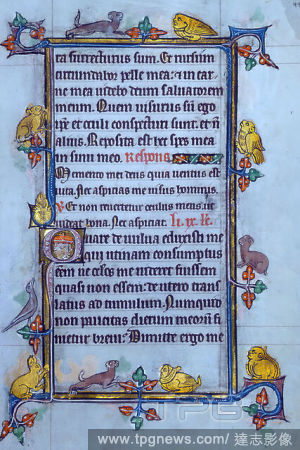 ra surrecturus sum. Et rursum
circundabor pelle mea: in car
ne mea videbo deum saluatorem
meum. Quem visurus sum ego
ipse et oculi conspecturi sunt. et n
alius. Reposita est hec spes mea
in sinu meo. Respons
Memento mei deus quia ventus est
vita. Nec aspiciat me visus hominis.
Et non reuertetur oculus meus. ut
videat bona. Nec aspiciat. li. ix. lc.
Quare de vulua eduxisti me
qui utinam consumptus
essem ne oculos me videret fuissem
quasi non essem: de utero trans
latus ad tumulum. Numquid
non paucitas dierum meorum fi
nietur breui: Dimitte ergo me
TPG
www.tpgnews.com/ 達志影像